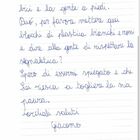 bici e la gente a piedi.
Può, per favore mettere qui
blocchi di plastica bianchi e neri
e dire alla gente di rispettare la
segnaletica?
Spero di essermi spiegato e che
Lei riesca a togliermi la mia
paura.
Cordiali saluti
Giacomo